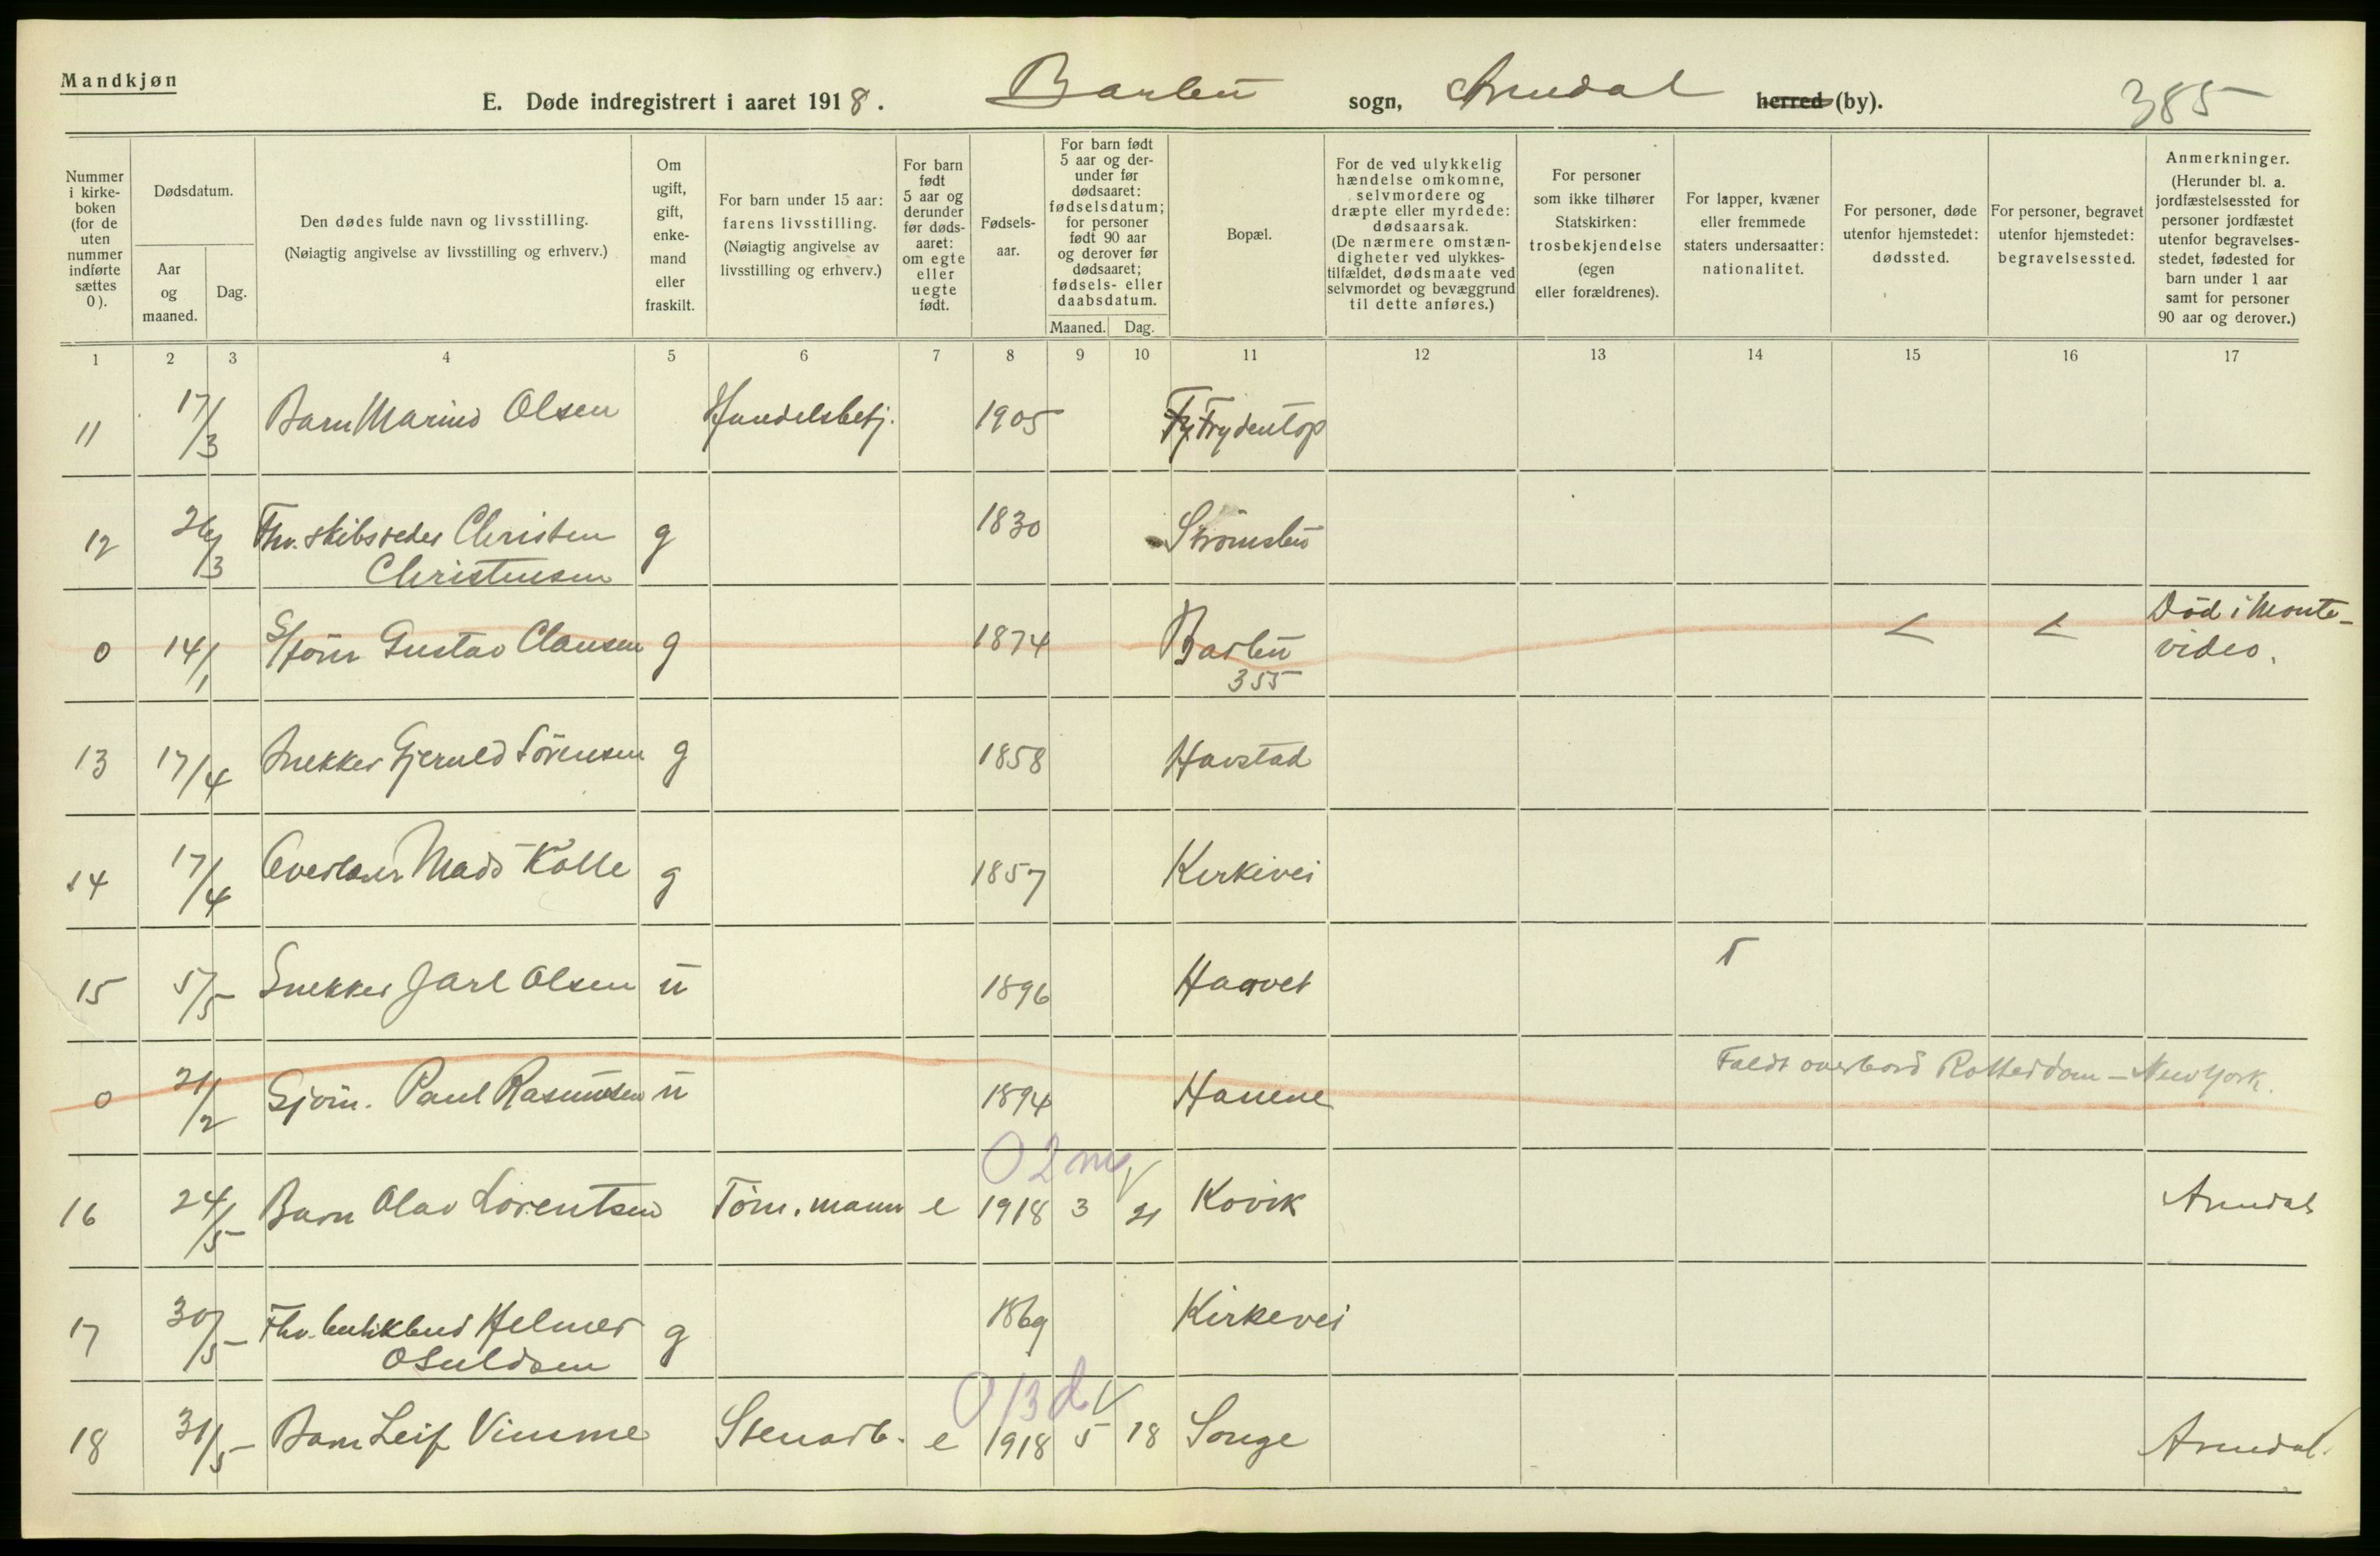 Mandkjøn
E. Døde indregistrert i aaret 1918. Barbu sogn, Arendal herred (by). 385
Nummer i kirke-boken (for de uten nummer indførte sættes 0).
Dødsdatum.
Aar og maaned.
Dag.
Den dødes fulde navn og livsstilling.
(Nøiagtig angivelse av livsstilling og erhverv.)
Om ugift, gift, enke-mand eller fraskilt.
For barn under 15 aar: farens livsstilling.
(Nøiagtig angivelse av livsstilling og erhverv.)
For barn født 5 aar og derunder før døds-aaret: om egte eller uegte født.
Fødsels-aar.
For barn født 5 aar og der-under før dødsaaret: fødselsdatum; for personer født 90 aar og derover før dødsaaret; fødsels- eller daabsdatum.
Maaned. Dag.
Bopæl.
For de ved ulykkelig hændelse omkomne, selvmordere og dræpte eller myrdede: dødsaarsak.
(De nærmere omstæn-digheter ved ulykkes-tilfældet, dødsmaate ved selvmordet og bevæggrund til dette anføres.)
For personer som ikke tilhører Statskirken: trosbekjendelse (egen eller forældrenes).
For lapper, kvæner eller fremmede staters undersaatter: nationalitet.
For personer, døde utenfor hjemstedet: dødssted.
For personer, begravet utenfor hjemstedet: begravelsessted.
Anmerkninger.
(Herunder bl. a. jordfæstelsessted for personer jordfæstet utenfor begravelses-stedet, fødested for barn under 1 aar samt for personer 90 aar og derover.)
1 2 3 4 5 6 7 8 9 10 11 12 13 14 15 16 17
11 17/3 Barn Marius Olsen Handelsbetj. 1905 Frydentop
12 26/3 Fhv. skibsreder Christen g 1830 Strömsbu
Christensen
0 14/1 Sjöm Gustav Clausen g 1874 Barbu < < Död i Monte-
355 video.
13 17/4 Snekker Gjeruld Sörensen g 1858 Havstad
14 17/4 Mads Kolle g 1857 Kirkevei
15 5/5 Snekker Jarl Olsen u 1896 Haavet
0 21/2 Sjöm. Paul Rasmussen u 1894 Hauene Faldt overbord Rotterdam – New York.
0 2 m
16 24/5 Barn Olav Lorentsen Töm.mann e 1918 3 21 Kovik Arendal
17 30/5 Fhv. butikbud Helmer g 1869 Kirkevei
Osuldsen
0 13 d
18 31/5 Barn Leif Vimme Stenarb. e 1918 5 18 Songe Arendal.